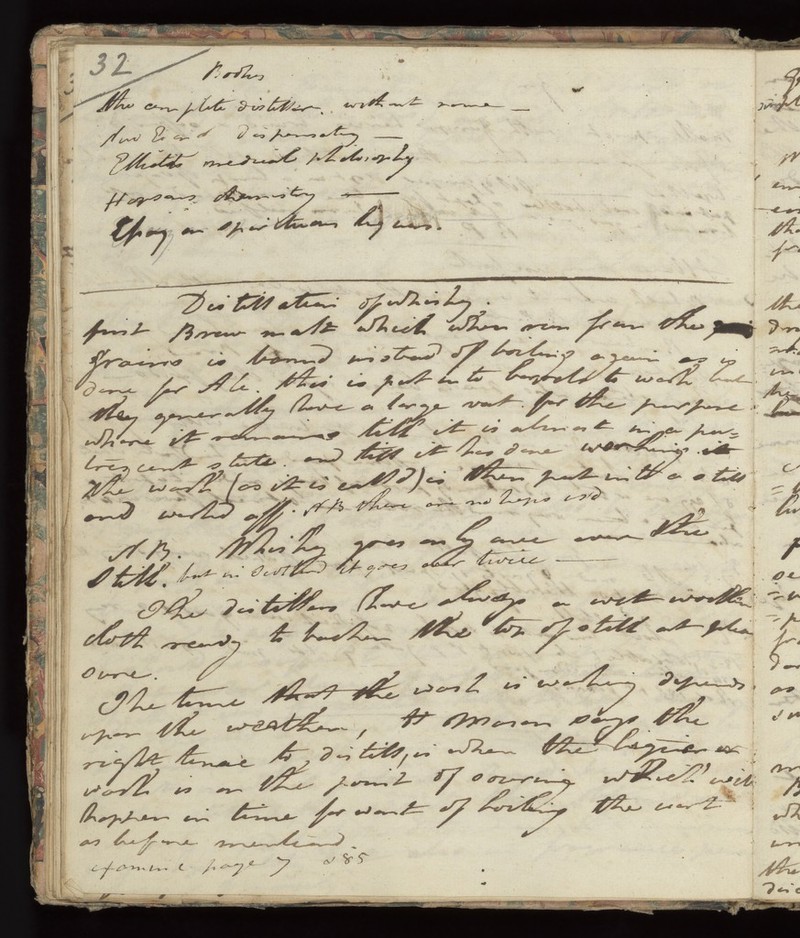 32
Books
the complete distiller. without name —
New Dispensatory —
Elliots medical philosophy
Hopsons chemistry —
Essay on Spirituous liquors.
Distillation of whisky.
first Brew malt which when run from the
grains is barmd instead of boiling again as is
done for Ale. this is put into barrels to work but
they generally have a large vat for the purpose
where it remains till it is almost in a pu=
trescent state and till it has done working it
the wash (as it is calld) is then put into a still
and workd off. NB there are no hops usd
NB. Whisky goes only once over the
Still. but in Scotland it goes over twice —
The distillers have always a wet woollen
cloth ready to the top of still at plea
sure.
The time that the wash is working depends
upon the weather, H Mason says the
right time to distill, is when the liquier or
wash is on the point of souring which will
happen in time for want of boiling the wort
as before mentiond.
examine page 7 285